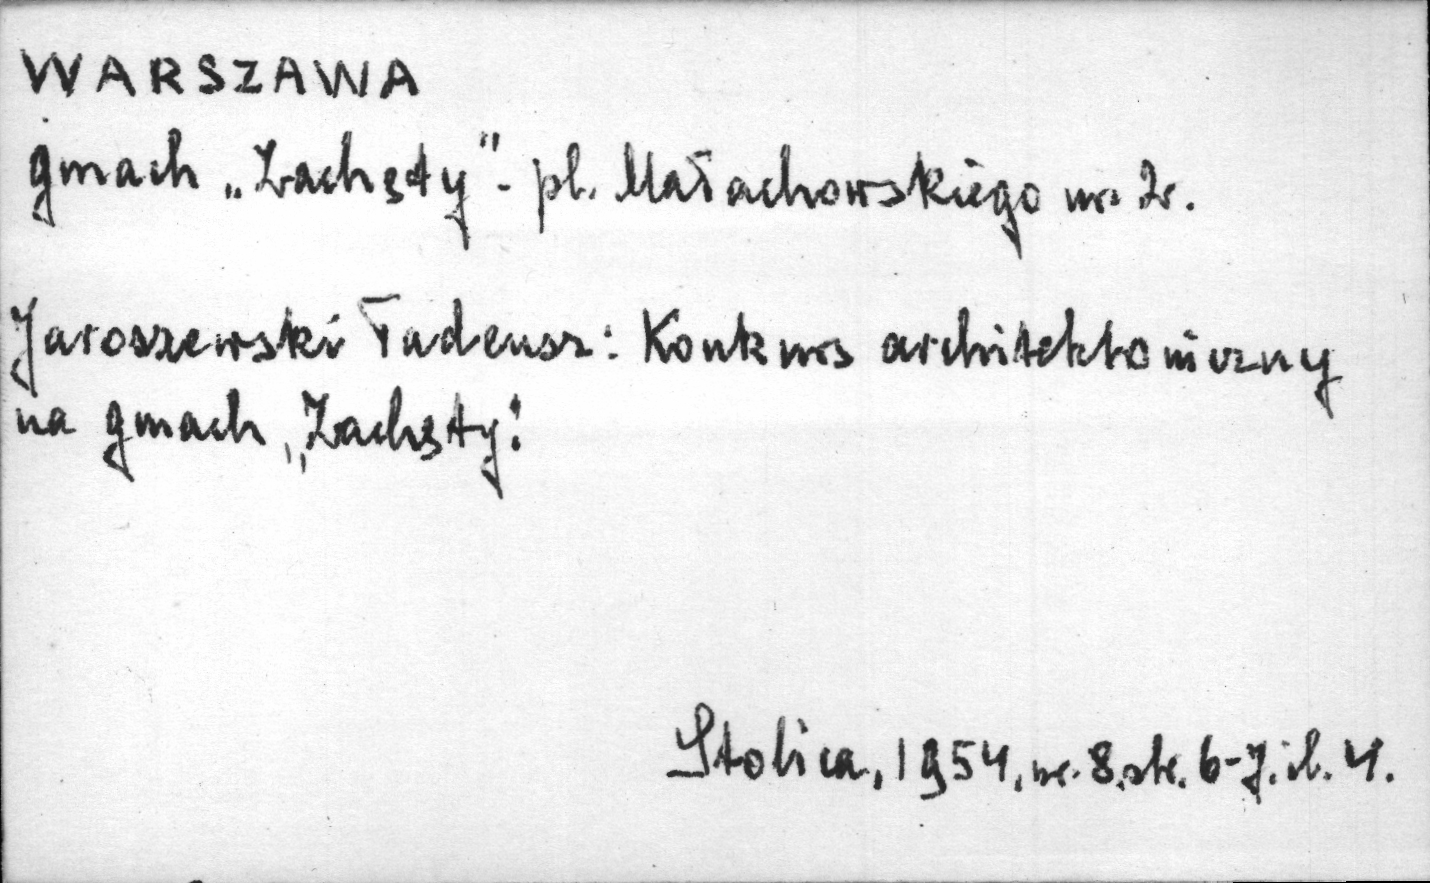 WARSZAWA
gmach „Zachęty" - pl. Małachowskiego nr 2.
Jaroszewski Tadeusz: Konkurs architektoniczny
na gmach „Zachęty".
Stolica, 1954, nr. 8, str. 6-7. il. 4.